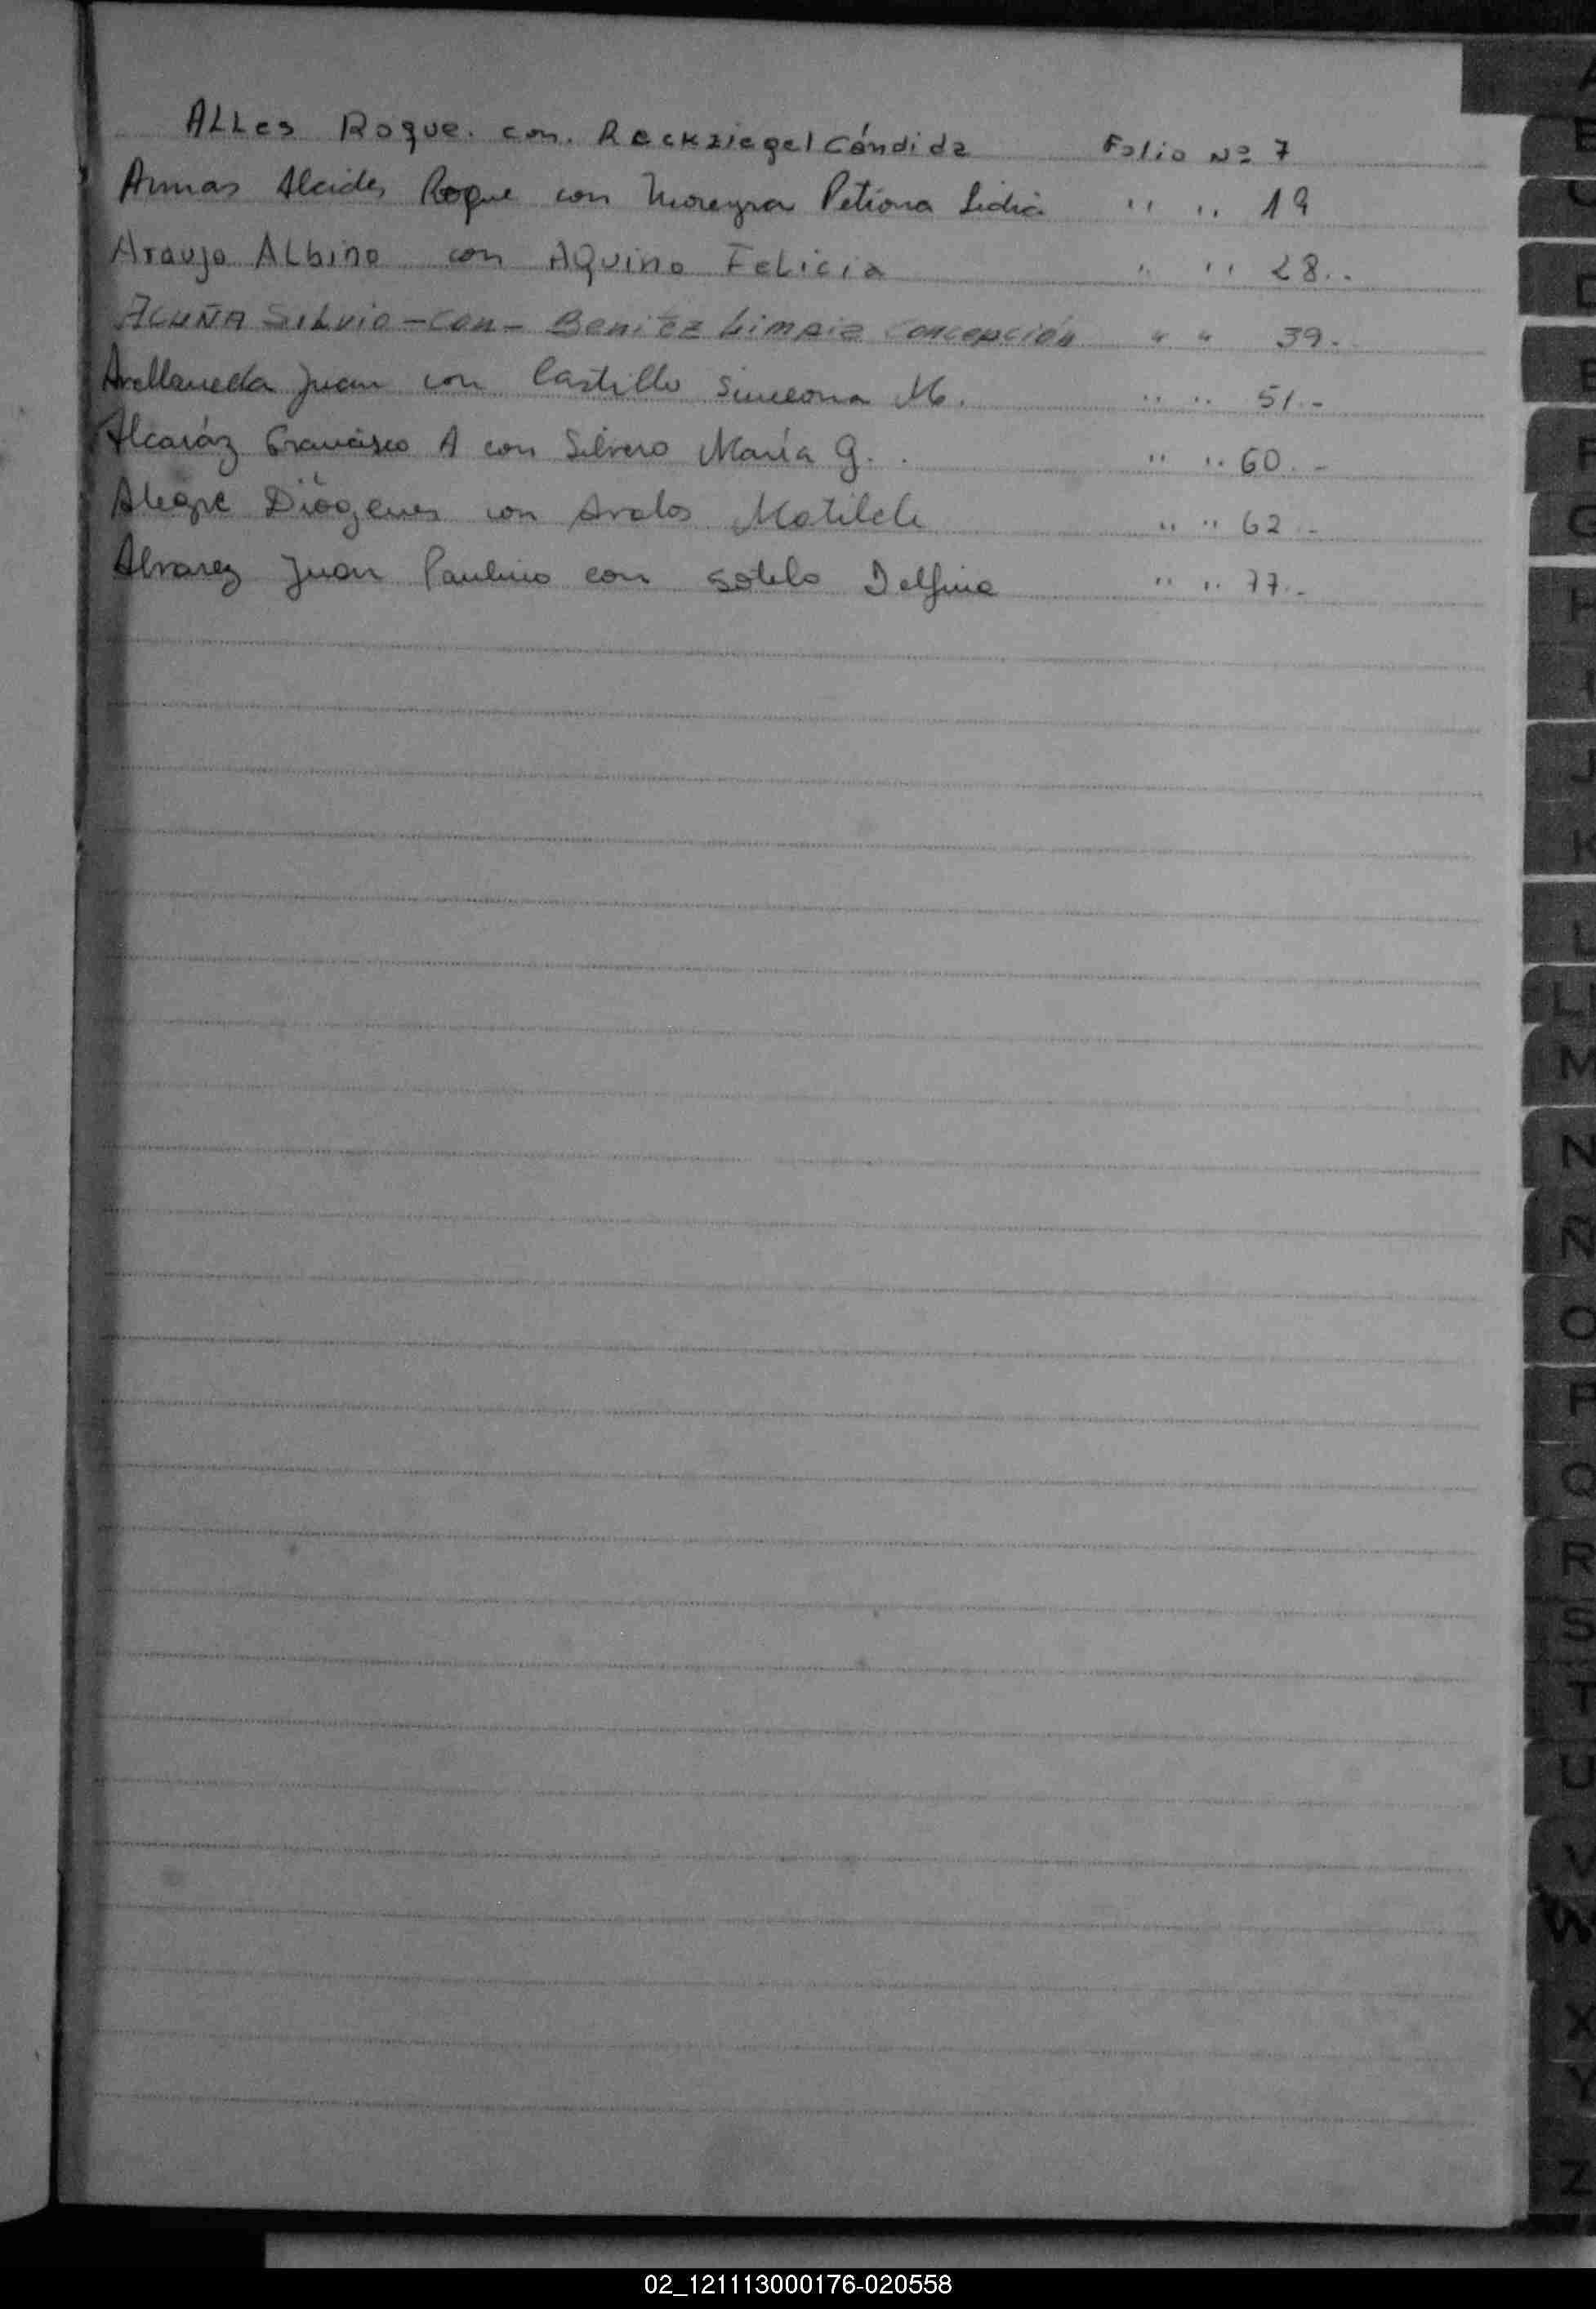 ALLes Roque. con. Reckziegel Cándida Folio Nº 7
Armas Alcides Roque con Moreyra Petrona Lidia " " 19
Araujo Albino con AQuino Felicia " " 28..
ACUÑA SILvio-con- Benitez Limpia Concepción " " 39.
Avellaneda Juan con Castillo Simeona M. " " 51.-
Alcaráz Francisco A con Silvero María G. . " " 60.-
Alegre Diógenes con Avalos Matilde " " 62.-
Alvarez Juan Paulino con Sotelo Delfina " " 77.-
A
B
C
D
E
F
G
H
I
J
K
L
LL
M
N
Ñ
O
P
Q
R
S
T
U
V
W
X
Y
Z
02_121113000176-020558